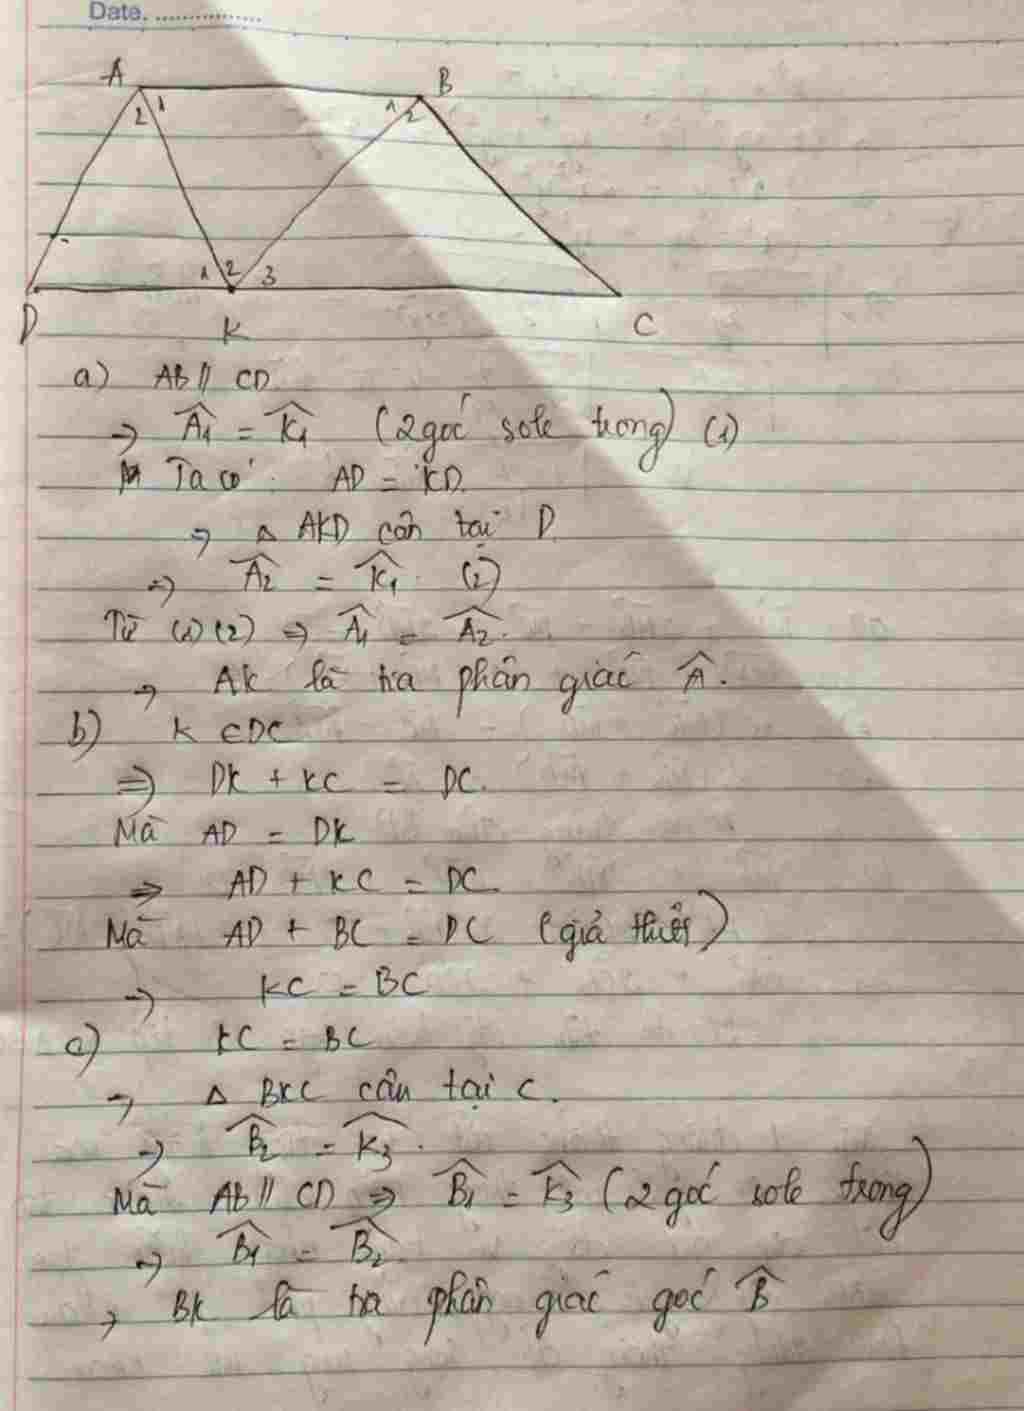 Date. ..................
A
B
2 1
1 2
1 2 3
D
K
C
a) AB // CD
→ Â1 = K̂1 (2 góc sole trong) (1)
Ta có: AD = KD.
⇒ △ AKD cân tại D.
⇒ Â2 = K̂1. (2)
Từ (1) (2) ⇒ Â1 = Â2.
→ AK là tia phân giác Â.
b) K ∈ DC
⇒ DK + KC = DC.
Mà AD = DK
⇒ AD + KC = DC.
Mà AD + BC = DC (giả thiết)
→ KC = BC
c) KC = BC
→ △ BKC cân tại C.
→ B̂2 = K̂3.
Mà AB // CD ⇒ B̂1 = K̂3 (2 góc sole trong)
→ B̂1 = B̂2.
→ BK là tia phân giác góc B̂